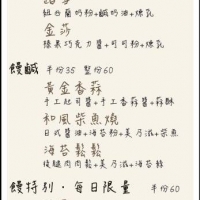 紐西蘭奶粉+鹹奶油+煉乳
金莎
榛果巧克力醬+可可粉+煉乳
饅鹹 半份35 整份60
黃金香蒜
手工起司醬+手工香蒜醬+蒜酥
和風柴魚燒
日式醬油+海苔粉+美乃滋+柴魚
海苔鬆鬆
後腿肉肉鬆+美乃滋+海苔絲
饅特別・每日限量 半份60